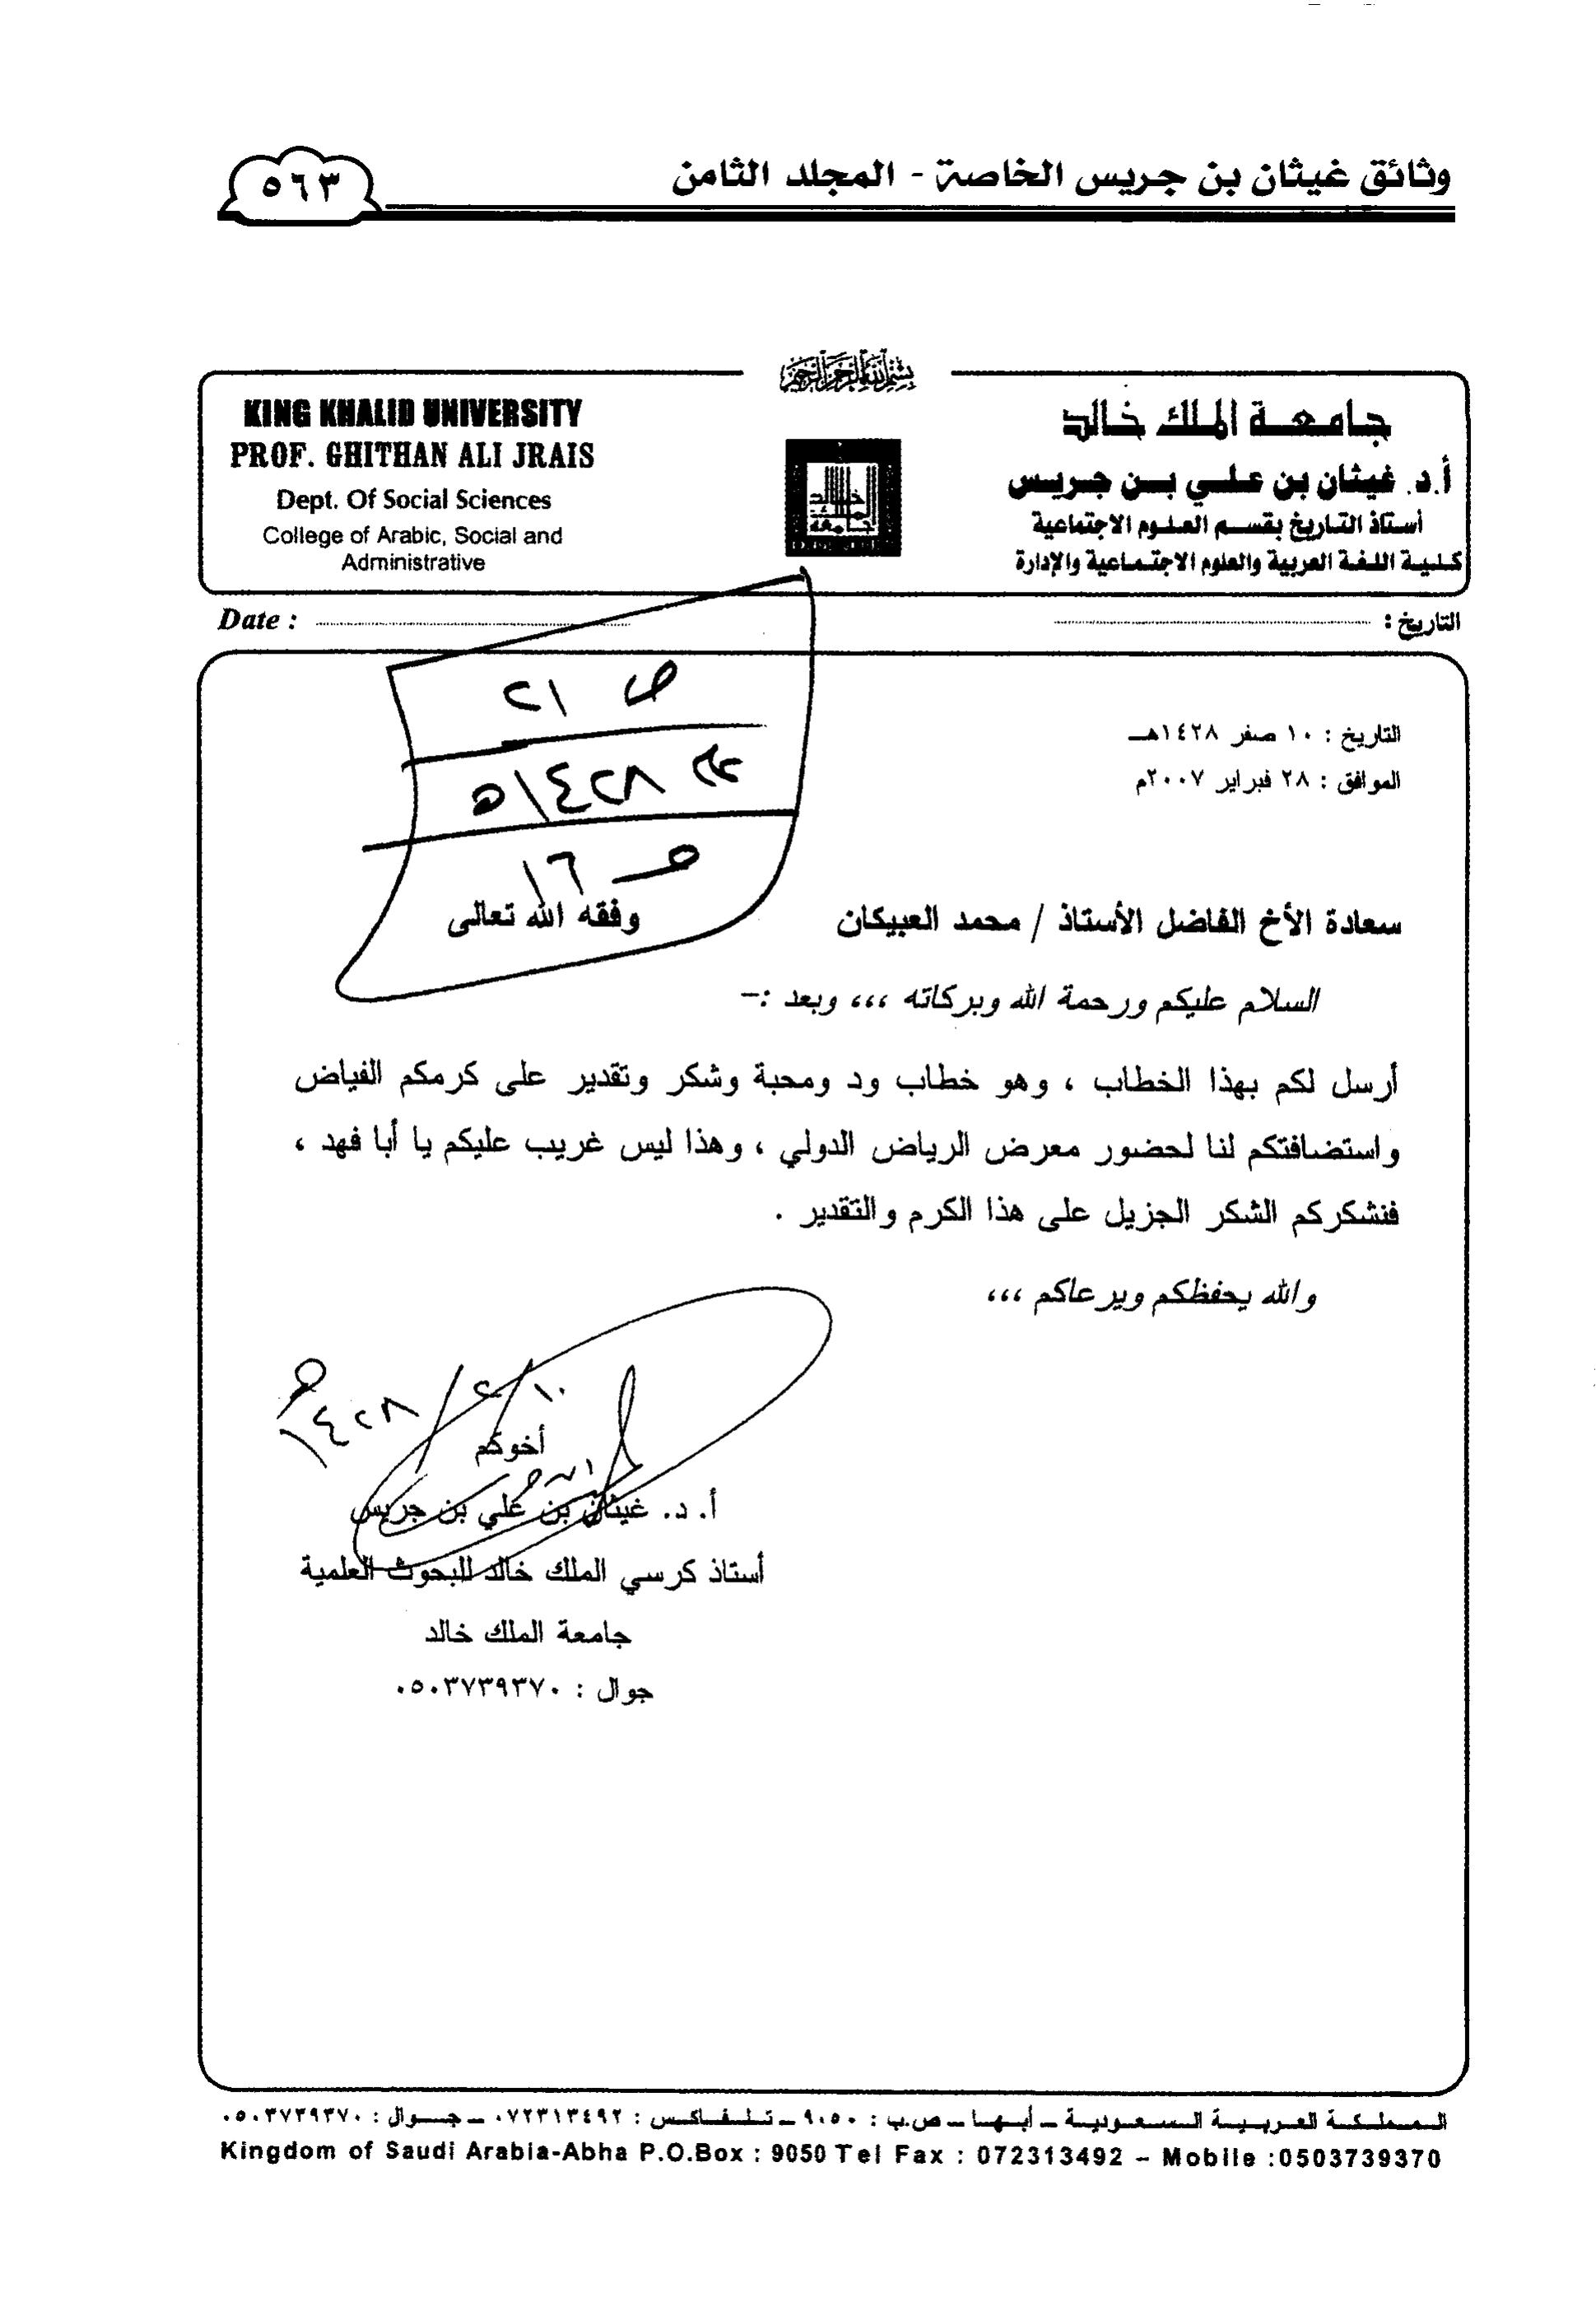 وثائق غيثان بن جريس الخاصة - المجلد الثامن
٥٦٣
بسم الله الرحمن الرحيم
جامعة الملك خالد
أ.د. غيثان بن علي بن جريس
أستاذ التاريخ بقسم العلوم الاجتماعية
كلية اللغة العربية والعلوم الاجتماعية والإدارة
KING KHALID UNIVERSITY
PROF. GHITHAN ALI JRAIS
Dept. Of Social Sciences
College of Arabic, Social and
Administrative
التاريخ :
Date :
ص ٢١
١٤٢٨هـ
١٦
التاريخ : ١٠ صفر ١٤٢٨هـ
الموافق : ٢٨ فبراير ٢٠٠٧م
سعادة الأخ الفاضل الأستاذ / محمد العبيكان وفقه الله تعالى
السلام عليكم ورحمة الله وبركاته ،،، وبعد :-
أرسل لكم بهذا الخطاب ، وهو خطاب ود ومحبة وشكر وتقدير على كرمكم الفياض
واستضافتكم لنا لحضور معرض الرياض الدولي ، وهذا ليس غريب عليكم يا أبا فهد ،
فنشكركم الشكر الجزيل على هذا الكرم والتقدير .
والله يحفظكم ويرعاكم ،،،
١٠/٢/١٤٢٨هـ
أخوكم
أ. د. غيثان بن علي بن جريس
أستاذ كرسي الملك خالد للبحوث العلمية
جامعة الملك خالد
جوال : ٠٥٠٣٧٣٩٣٧٠
المملكة العربية السعودية – أبها – ص.ب : ٩٠٥٠ – تلفاكس : ٠٧٢٣١٣٤٩٢ – جوال : ٠٥٠٣٧٣٩٣٧٠
Kingdom of Saudi Arabia-Abha P.O.Box : 9050 Tel Fax : 072313492 – Mobile :0503739370